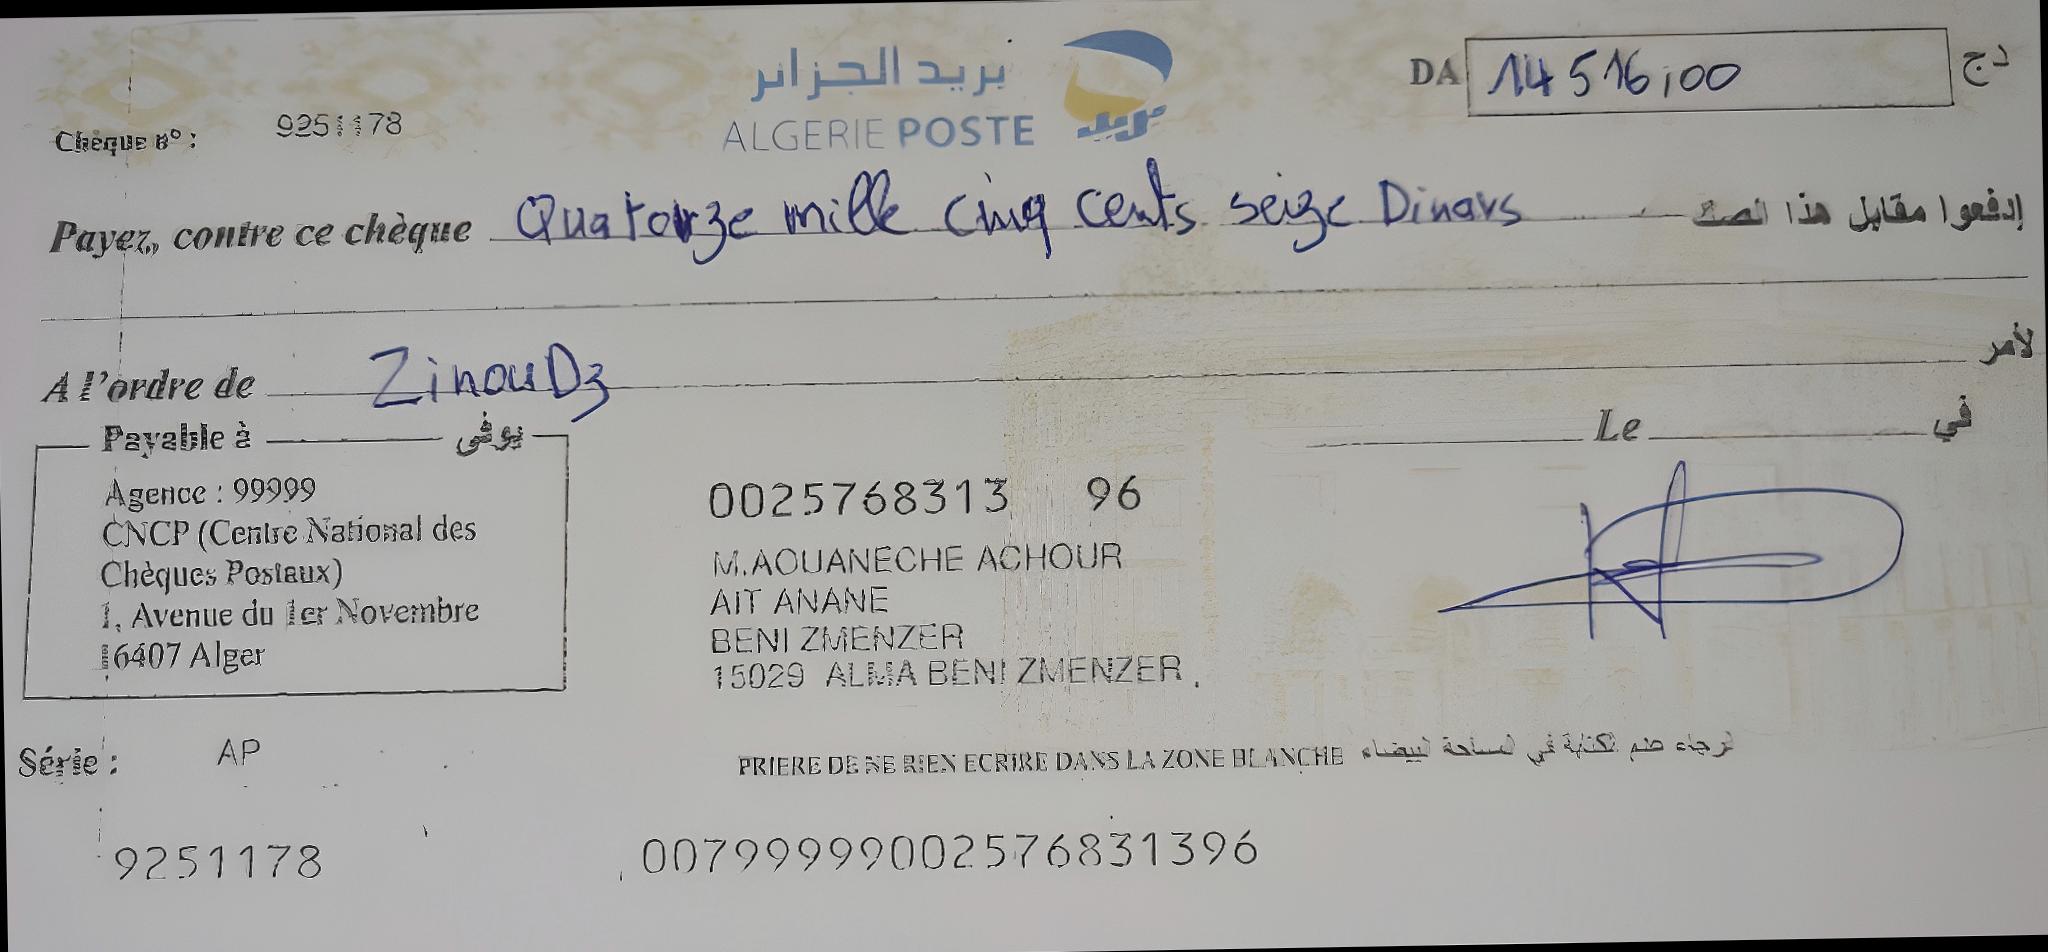 بريد الجزائر
ALGERIE POSTE
بريد
DA 14 516,00 دج
Chèque n° : 9251178
Payez, contre ce chèque Quatorze mille cinq cents seize Dinars إدفعوا مقابل هذا الصك
A l'ordre de ZinouDz لأمر
Payable à يوفى
Le في
Agence : 99999
CNCP (Centre National des
Chèques Postaux)
1, Avenue du 1er Novembre
16407 Alger
0025768313 96
M.AOUANECHE ACHOUR
AIT ANANE
BENI ZMENZER
15029 ALMA BENI ZMENZER
Série : AP
PRIERE DE NE RIEN ECRIRE DANS LA ZONE BLANCHE لرجاء عدم لكتابة في لمساحة لبيضاء
9251178
00799999002576831396